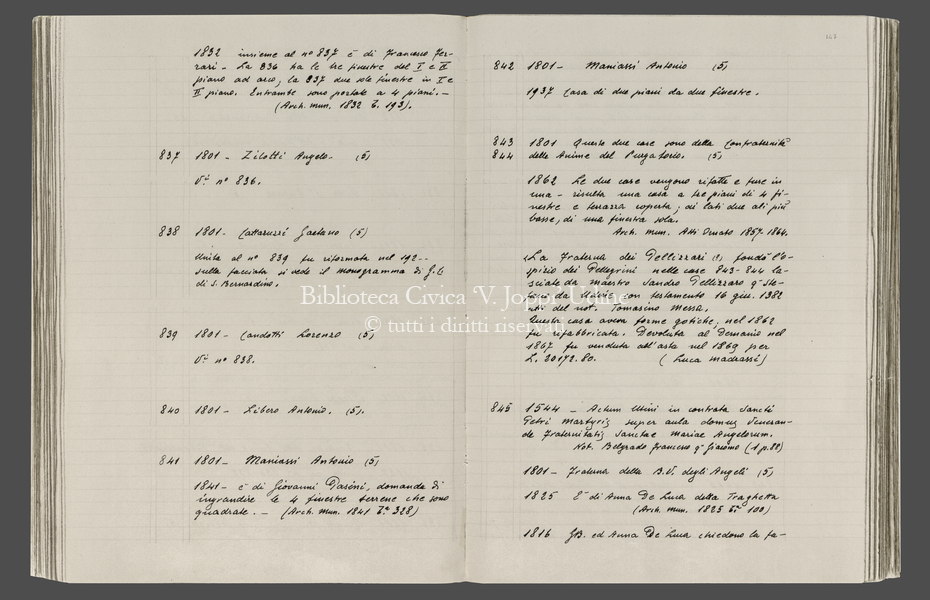 1832 insieme al n° 837 è di Francesco Fer-
rari - La 836 ha le tre finestre del I e II
piano ad arco, la 837 due sole finestre in I e
II piano. Entrambe sono portate a 4 piani. -
(Arch. mun. 1832 b. 193).
837 1801 - Zilotti Angelo - (5)
V. n° 836.
838 1801 - Cattaruzzi Gaetano (5)
Unita al n° 839 fu riformata nel 192..
sulla facciata si vede il monogramma di G.C
di S. Bernardino.
839 1801 - Candotti Lorenzo (5)
V. n° 838.
840 1801 - Libero Antonio. (5).
841 1801 - Maniassi Antonio (5)
1841 - è di Giovanni domanda di
ingrandire le 4 finestre terrene che sono
quadrate. - (Arch. mun. 1841 b. 328)
842 1801 - Maniassi Antonio (5)
1937 Casa di due piani da due finestre.
843 1801 Queste due case sono della Confraternità
844 delle Anime del Purgatorio. (5)
1862 Le due case vengono rifatte e fuse in
una - risulta una casa a tre piani di 4 fi-
nestre e terrazza coperta; ai lati due ali più
basse, di una finestra sola.
Arch. mun. Atti Ornato 1857-1864.
La Fraterna dei Pellizzari (?) fondò l'o-
spizio dei Pellegrini nelle case 843-844 la-
sciate da maestro Sandro Pellizzaro
da Udine con testamento 16 giu. 1382
atti del not. Tomasino Messa.
Questa casa aveva forme gotiche; nel 1862
fu rifabbricata. Devoluta al Demanio nel
1867 fu venduta all'asta nel 1869 per
L. 20172.80. (Luca madrassi)
845 1544 - Actum Utini in contrata Sancti
Petri Martyris super aula domus Veneran-
de Fraternitatis Sanctae Mariae Angelorum.
Not. Belgrado Francesco q. Giacomo (1 p. 82)
1801 - Fraterna della B.V. degli Angeli (5)
1825 È di Anna De Luca detta Traghetta
(Arch. mun. 1825 b. 100)
1816 GB. ed Anna De Luca chiedono la fa-
Biblioteca Civica 'V. Joppi' Udine
© tutti i diritti riservati